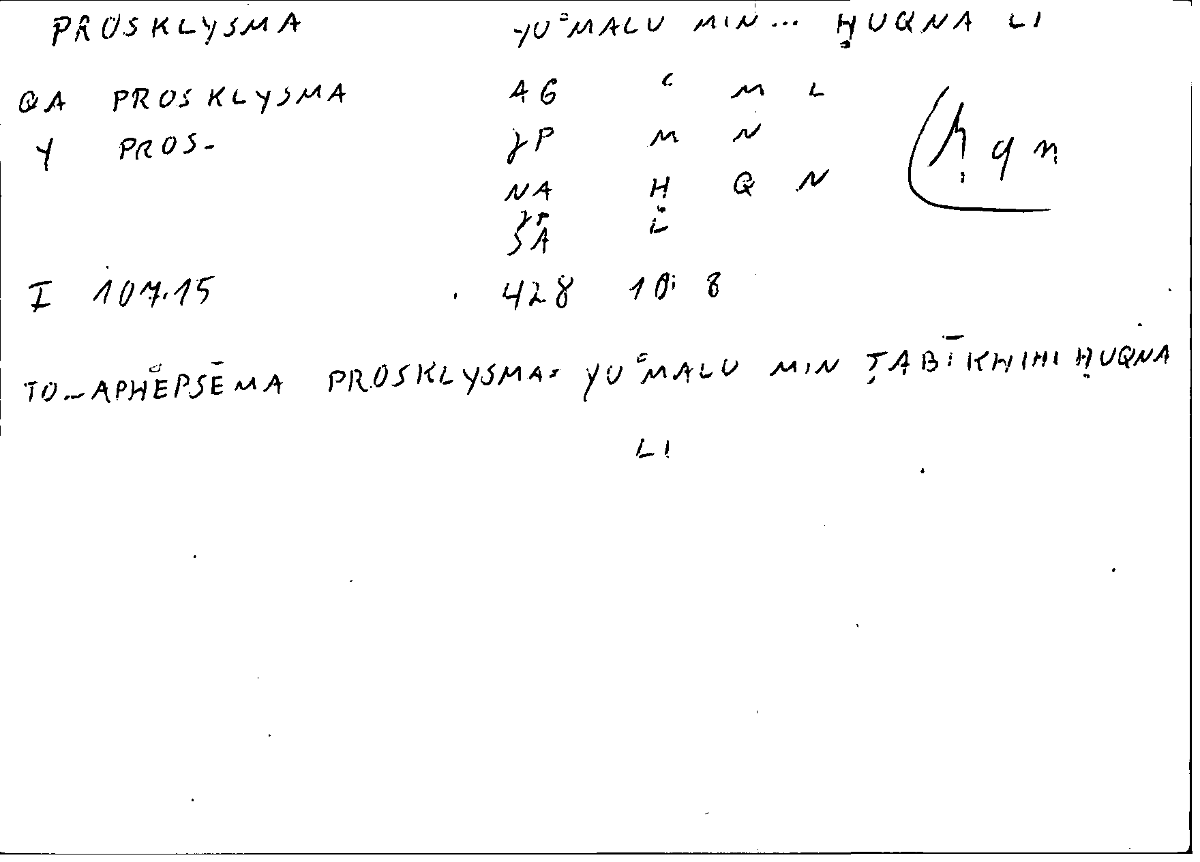 PROSKLYSMA YUʿMALU MIN... ḤUQNA LI
QA PROSKLYSMA AG ʿ M L
Y PROS- γP M N ḥqn
NA Ḥ Q N
γP
SA L
I 107.15 428 10: 8
TO_APHĔPSĒMA PROSKLYSMA= YUʿMALU MIN ṬABĪKHIHI ḤUQNA
LI